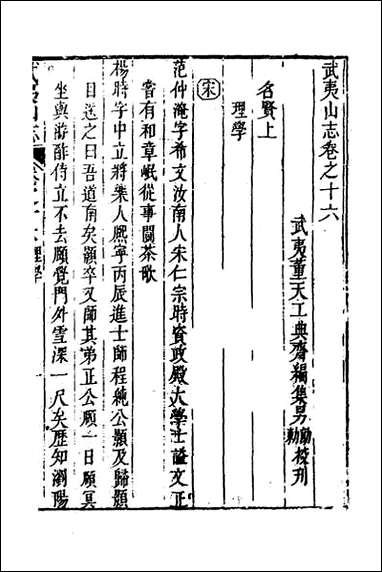 武夷山志卷之十六
武夷董天工典齋編集男勳勅校刊
名賢上
理學
宋
范仲淹字希文汝南人宋仁宗時資政殿大學士諡文正
嘗有和章岷從事鬬茶歌
楊時字中立將樂人熙寧丙辰進士師程純公顥及歸顥
目送之曰吾道南矣顥卒又師其弟正公頤一日頤冥
坐與游酢侍立不去頤覺門外雪深一尺矣歷知瀏陽
武夷山志 卷之十六 理學 一